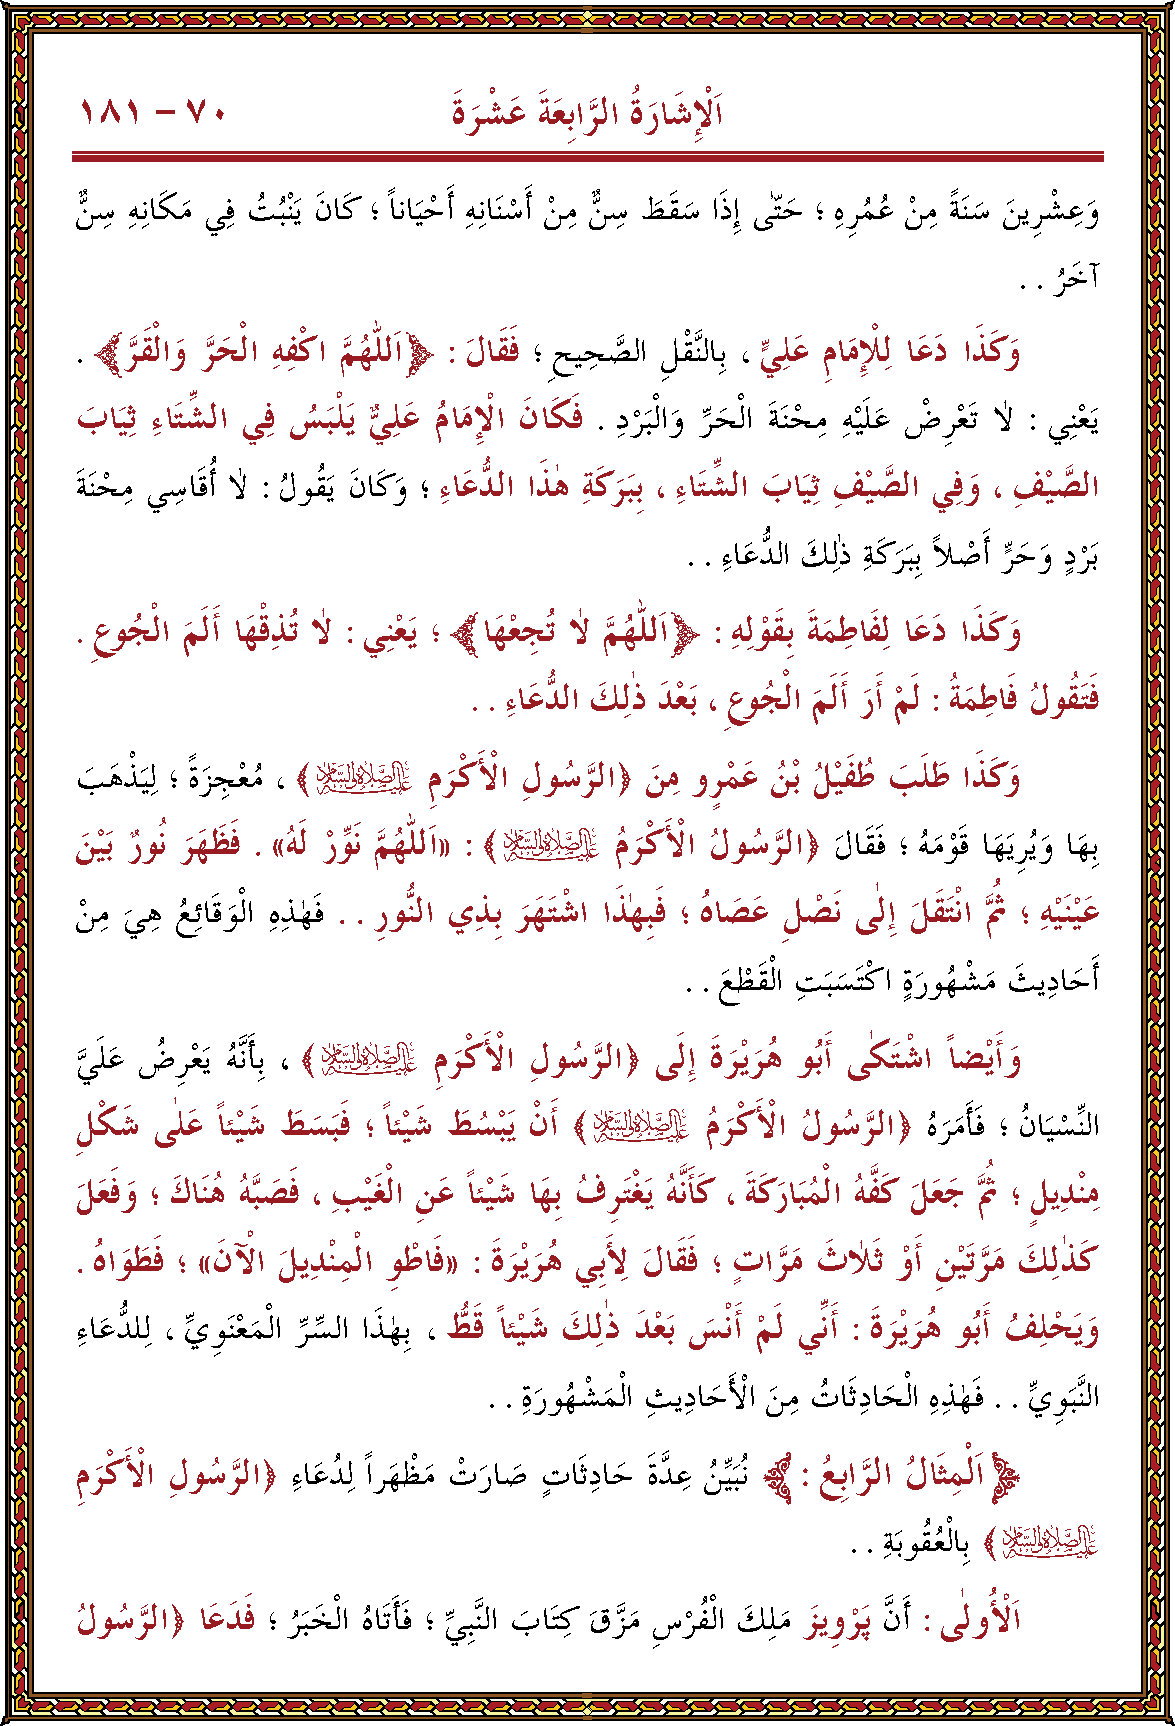 اَلْإِشَارَةُ الرَّابِعَةَ عَشْرَةَ ٧٠ – ١٨١
وَعِشْرِينَ سَنَةً مِنْ عُمُرِهِ ؛ حَتّٰى إِذَا سَقَطَ سِنٌّ مِنْ أَسْنَانِهِ أَحْيَاناً ؛ كَانَ يَنْبُتُ فِي مَكَانِهِ سِنٌّ
آخَرُ . .
وَكَذَا دَعَا لِلْإِمَامِ عَلِيٍّ ، بِالنَّقْلِ الصَّحِيحِ ؛ فَقَالَ : ﴿اَللّٰهُمَّ اكْفِهِ الْحَرَّ وَالْقَرَّ﴾ .
يَعْنِي : لَا تَعْرِضْ عَلَيْهِ مِحْنَةَ الْحَرِّ وَالْبَرْدِ . فَكَانَ الْإِمَامُ عَلِيٌّ يَلْبَسُ فِي الشِّتَاءِ ثِيَابَ
الصَّيْفِ ، وَفِي الصَّيْفِ ثِيَابَ الشِّتَاءِ ، بِبَرَكَةِ هٰذَا الدُّعَاءِ ؛ وَكَانَ يَقُولُ : لَا أُقَاسِي مِحْنَةَ
بَرْدٍ وَحَرٍّ أَصْلاً بِبَرَكَةِ ذٰلِكَ الدُّعَاءِ . .
وَكَذَا دَعَا لِفَاطِمَةَ بِقَوْلِهِ : ﴿اَللّٰهُمَّ لَا تُجِعْهَا﴾ ؛ يَعْنِي : لَا تُذِقْهَا أَلَمَ الْجُوعِ .
فَتَقُولُ فَاطِمَةُ : لَمْ أَرَ أَلَمَ الْجُوعِ ، بَعْدَ ذٰلِكَ الدُّعَاءِ . .
وَكَذَا طَلَبَ طُفَيْلُ بْنُ عَمْرٍو مِنَ ﴿الرَّسُولِ الْأَكْرَمِ عليه الصلاة والسلام﴾ ، مُعْجِزَةً ؛ لِيَذْهَبَ
بِهَا وَيُرِيَهَا قَوْمَهُ ؛ فَقَالَ ﴿الرَّسُولُ الْأَكْرَمُ عليه الصلاة والسلام﴾ : «اَللّٰهُمَّ نَوِّرْ لَهُ» . فَظَهَرَ نُورٌ بَيْنَ
عَيْنَيْهِ ؛ ثُمَّ انْتَقَلَ إِلٰى نَصْلِ عَصَاهُ ؛ فَبِهٰذَا اشْتَهَرَ بِذِي النُّورِ . . فَهٰذِهِ الْوَقَائِعُ هِيَ مِنْ
أَحَادِيثَ مَشْهُورَةٍ اكْتَسَبَتِ الْقَطْعَ . .
وَأَيْضاً اشْتَكٰى أَبُو هُرَيْرَةَ إِلَى ﴿الرَّسُولِ الْأَكْرَمِ عليه الصلاة والسلام﴾ ، بِأَنَّهُ يَعْرِضُ عَلَيَّ
النِّسْيَانُ ؛ فَأَمَرَهُ ﴿الرَّسُولُ الْأَكْرَمُ عليه الصلاة والسلام﴾ أَنْ يَبْسُطَ شَيْئاً ؛ فَبَسَطَ شَيْئاً عَلٰى شَكْلِ
مِنْدِيلٍ ؛ ثُمَّ جَعَلَ كَفَّهُ الْمُبَارَكَةَ ، كَأَنَّهُ يَغْتَرِفُ بِهَا شَيْئاً عَنِ الْغَيْبِ ، فَصَبَّهُ هُنَاكَ ؛ وَفَعَلَ
كَذٰلِكَ مَرَّتَيْنِ أَوْ ثَلَاثَ مَرَّاتٍ ؛ فَقَالَ لِأَبِي هُرَيْرَةَ : «فَاطْوِ الْمِنْدِيلَ الْآنَ» ؛ فَطَوَاهُ .
وَيَحْلِفُ أَبُو هُرَيْرَةَ : أَنِّي لَمْ أَنْسَ بَعْدَ ذٰلِكَ شَيْئاً قَطُّ ، بِهٰذَا السِّرِّ الْمَعْنَوِيِّ ، لِلدُّعَاءِ
النَّبَوِيِّ . . فَهٰذِهِ الْحَادِثَاتُ مِنَ الْأَحَادِيثِ الْمَشْهُورَةِ . .
﴿اَلْمِثَالُ الرَّابِعُ :﴾ نُبَيِّنُ عِدَّةَ حَادِثَاتٍ صَارَتْ مَظْهَراً لِدُعَاءِ ﴿الرَّسُولِ الْأَكْرَمِ
عليه الصلاة والسلام﴾ بِالْعُقُوبَةِ . .
اَلْأُولٰى : أَنَّ پَرْوِيزَ مَلِكَ الْفُرْسِ مَزَّقَ كِتَابَ النَّبِيِّ ؛ فَأَتَاهُ الْخَبَرُ ؛ فَدَعَا ﴿الرَّسُولُ